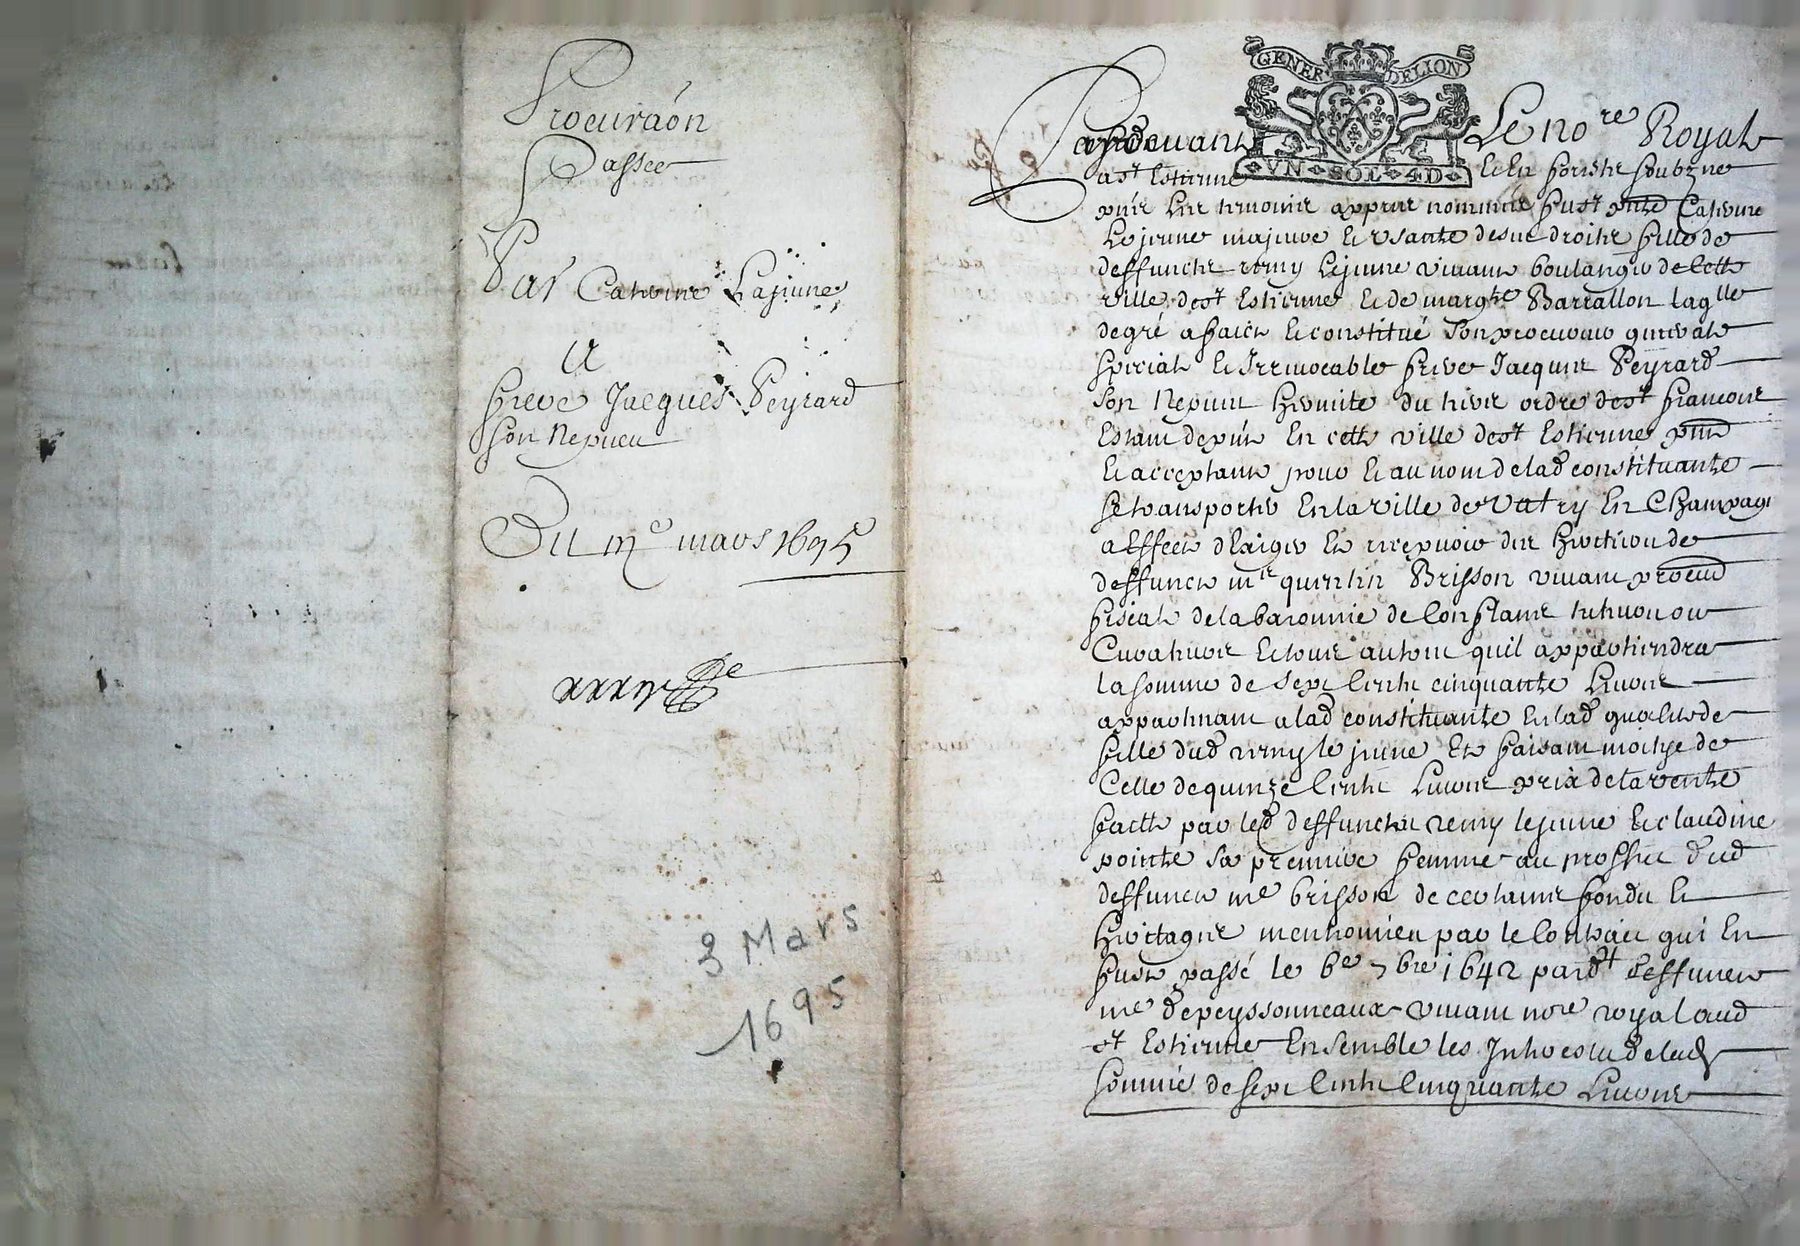 Procuraón
Passée
Par Catherine Lajeune
A
frere Jacques Peyrard
son Nepueu
Du iij^e mars 1695
3 Mars
1695
GENER DE LION
VN SOL 4D
Pardeuant Le no^re Royal
a s^t Estienne et En foreste soubzne
et les tesmoins appres nommés fust Caterine
Lejeune majeure et vsante de ses droits fille de
deffuncte remy Lejeune viuant boulanger de cette
ville de s^t Estienne et de marg^te Barrallon laq^lle
de gré a faict et constitué son procureur general
special et Irreuocable frere Jacques Peyrard
son Nepueu hermite du tiers ordre de s^t francois
Estant de p^nt En cette ville de s^t Estienne p^nt
et acceptant pour et au nom de lad constituante
se transporter En la ville de Vatry En Champag
a Effect dExiger et recepuoir des heritiers de
deffunct m^e quentin Brisson viuant procur
fiscal de la baronnie de Conflans tuteurs ou
Curateurs et tous autres quil appartiendra
la somme de sept Cents cinquante Liures
appartenant a lad constituante En lad qualité de
fille dud remy le jeune Et faisant moitye de
Celle de quinze Cents Liures prix de la vente
faicte par led deffunct remy lejeune et claudine
pointe sa premiere femme au proffict dud
deffunct m^e brisson de certains fonds et
heritages mentionnés par le Contract qui En
fust passé le 6^e 7^bre 1642 pard^t deffunct
m^e depeyssonneaux viuant no^re royal aud
s^t Estienne Ensemble les Interests de lad
somme de sept Cents Cinquante Liures